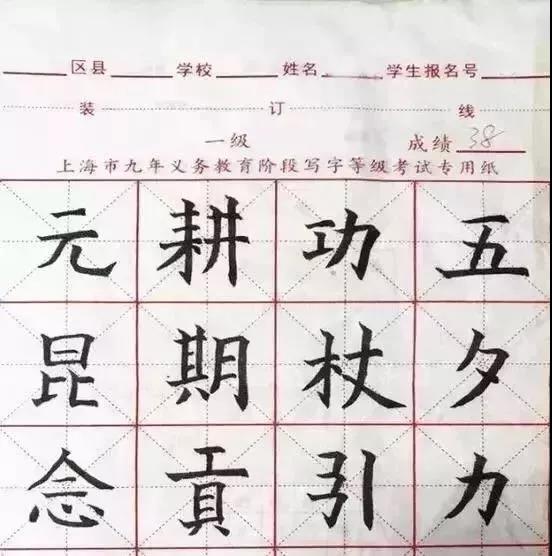 区县 学校 姓名 学生报名号
装 订 线
一级 成绩 38
上海市九年义务教育阶段写字等级考试专用纸
元 耕 功 五
昆 期 杖 夕
念 貢 引 力